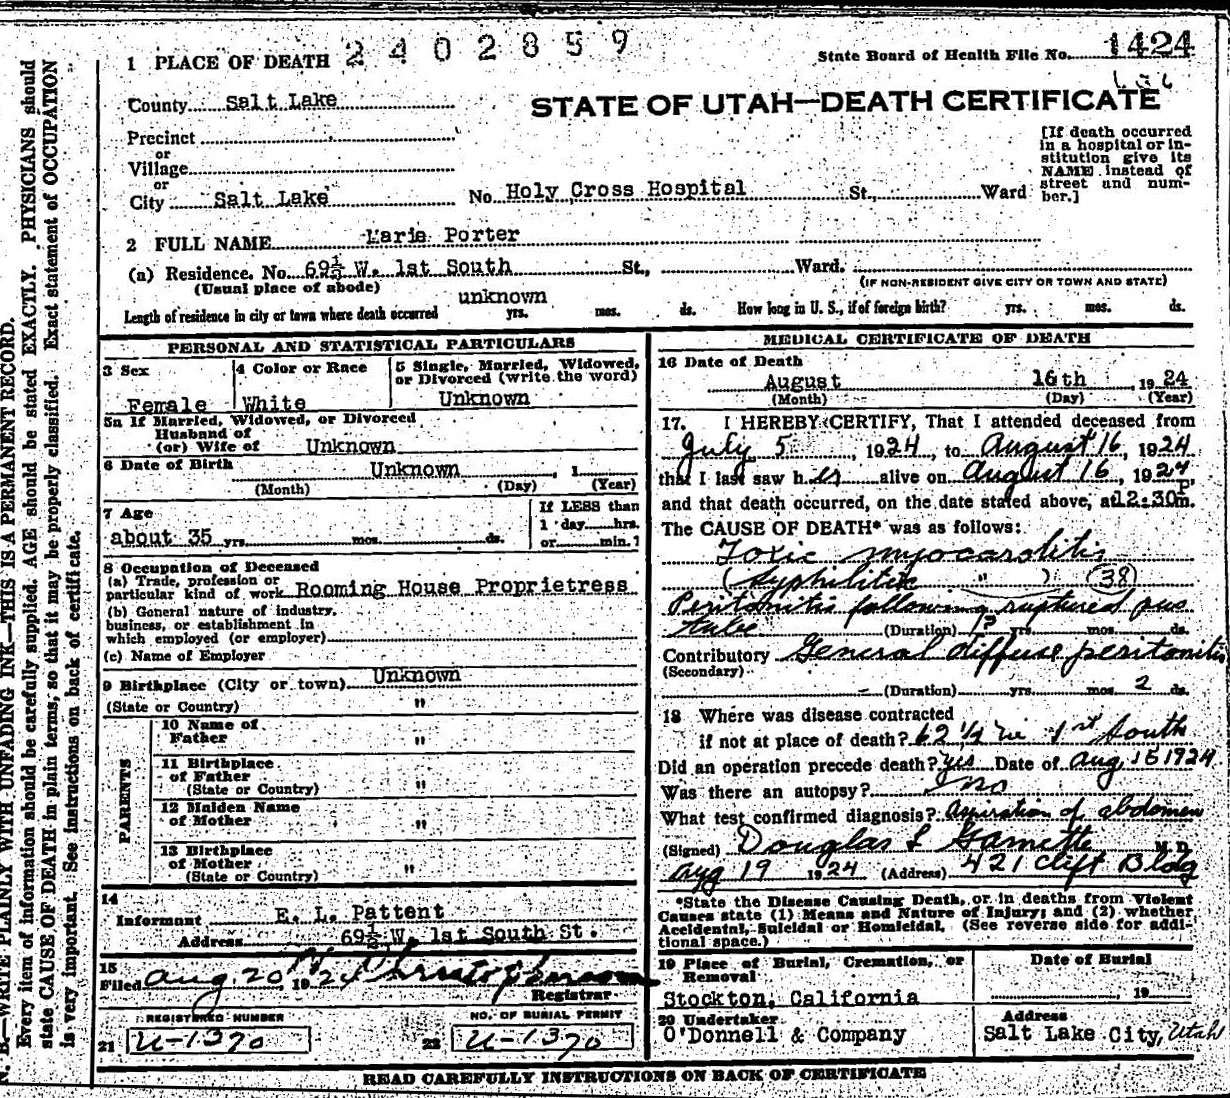 1 PLACE OF DEATH 2402859
State Board of Health File No. 1424
County Salt Lake
STATE OF UTAH—DEATH CERTIFICATE
Precinct
or
Village
or
City Salt Lake No. Holy Cross Hospital St., Ward
[If death occurred
in a hospital or in-
stitution give its
NAME instead of
street and num-
ber.]
2 FULL NAME Marie Porter
(a) Residence. No. 69½ W. 1st South St., Ward.
(Usual place of abode)
(IF NON-RESIDENT GIVE CITY OR TOWN AND STATE)
Length of residence in city or town where death occurred unknown yrs. mos. ds. How long in U. S., if of foreign birth? yrs. mos. ds.
PERSONAL AND STATISTICAL PARTICULARS
3 Sex
Female
4 Color or Race
White
5 Single, Married, Widowed,
or Divorced (write the word)
Unknown
5a If Married, Widowed, or Divorced
Husband of
(or) Wife of Unknown
6 Date of Birth Unknown , 1
(Month) (Day) (Year)
7 Age
about 35 yrs. mos. ds.
If LESS than
1 day hrs.
or min.?
8 Occupation of Deceased
(a) Trade, profession or
particular kind of work Rooming House Proprietress
(b) General nature of industry,
business, or establishment in
which employed (or employer)
(c) Name of Employer
9 Birthplace (City or town) Unknown
(State or Country) "
PARENTS
10 Name of
Father "
11 Birthplace
of Father
(State or Country) "
12 Maiden Name
of Mother "
13 Birthplace
of Mother
(State or Country) "
14
Informant E. L. Pattent
Address 69½ W. 1st South St.
15
Filed Aug. 20, 1924
Registrar
REGISTERED NUMBER
21 U-1370
NO. OF BURIAL PERMIT
22 U-1370
MEDICAL CERTIFICATE OF DEATH
16 Date of Death
August 16th , 1924
(Month) (Day) (Year)
17. I HEREBY CERTIFY, That I attended deceased from
July 5, 1924, to August 16, 1924
that I last saw her alive on August 16, 1924,
and that death occurred, on the date stated above, at 12:30 P m.
The CAUSE OF DEATH* was as follows:
Toxic myocarditis
(Syphilitic " ) (38)
Peritonitis following ruptured pus
tube (Duration) 1? yrs. mos. ds.
Contributory General diffuse peritonitis
(Secondary)
(Duration) yrs. mos. 2 ds.
18 Where was disease contracted
if not at place of death? 62 ½ W 1st South
Did an operation precede death? yes Date of Aug 15 1924
Was there an autopsy? no
What test confirmed diagnosis? Aspiration of abdomen
(Signed) Douglas L Garnette M.D.
Aug 19 1924 (Address) 421 Clift Bldg
*State the Disease Causing Death, or in deaths from Violent
Causes state (1) Means and Nature of Injury; and (2) whether
Accidental, Suicidal or Homicidal. (See reverse side for addi-
tional space.)
19 Place of Burial, Cremation, or
Removal
Stockton, California
Date of Burial
, 19
20 Undertaker
O'Donnell & Company
Address
Salt Lake City, Utah
READ CAREFULLY INSTRUCTIONS ON BACK OF CERTIFICATE
N. B.—WRITE PLAINLY WITH UNFADING INK—THIS IS A PERMANENT RECORD.
Every item of information should be carefully supplied. AGE should be stated EXACTLY. PHYSICIANS should
state CAUSE OF DEATH in plain terms, so that it may be properly classified. Exact statement of OCCUPATION
is very important. See instructions on back of certificate.